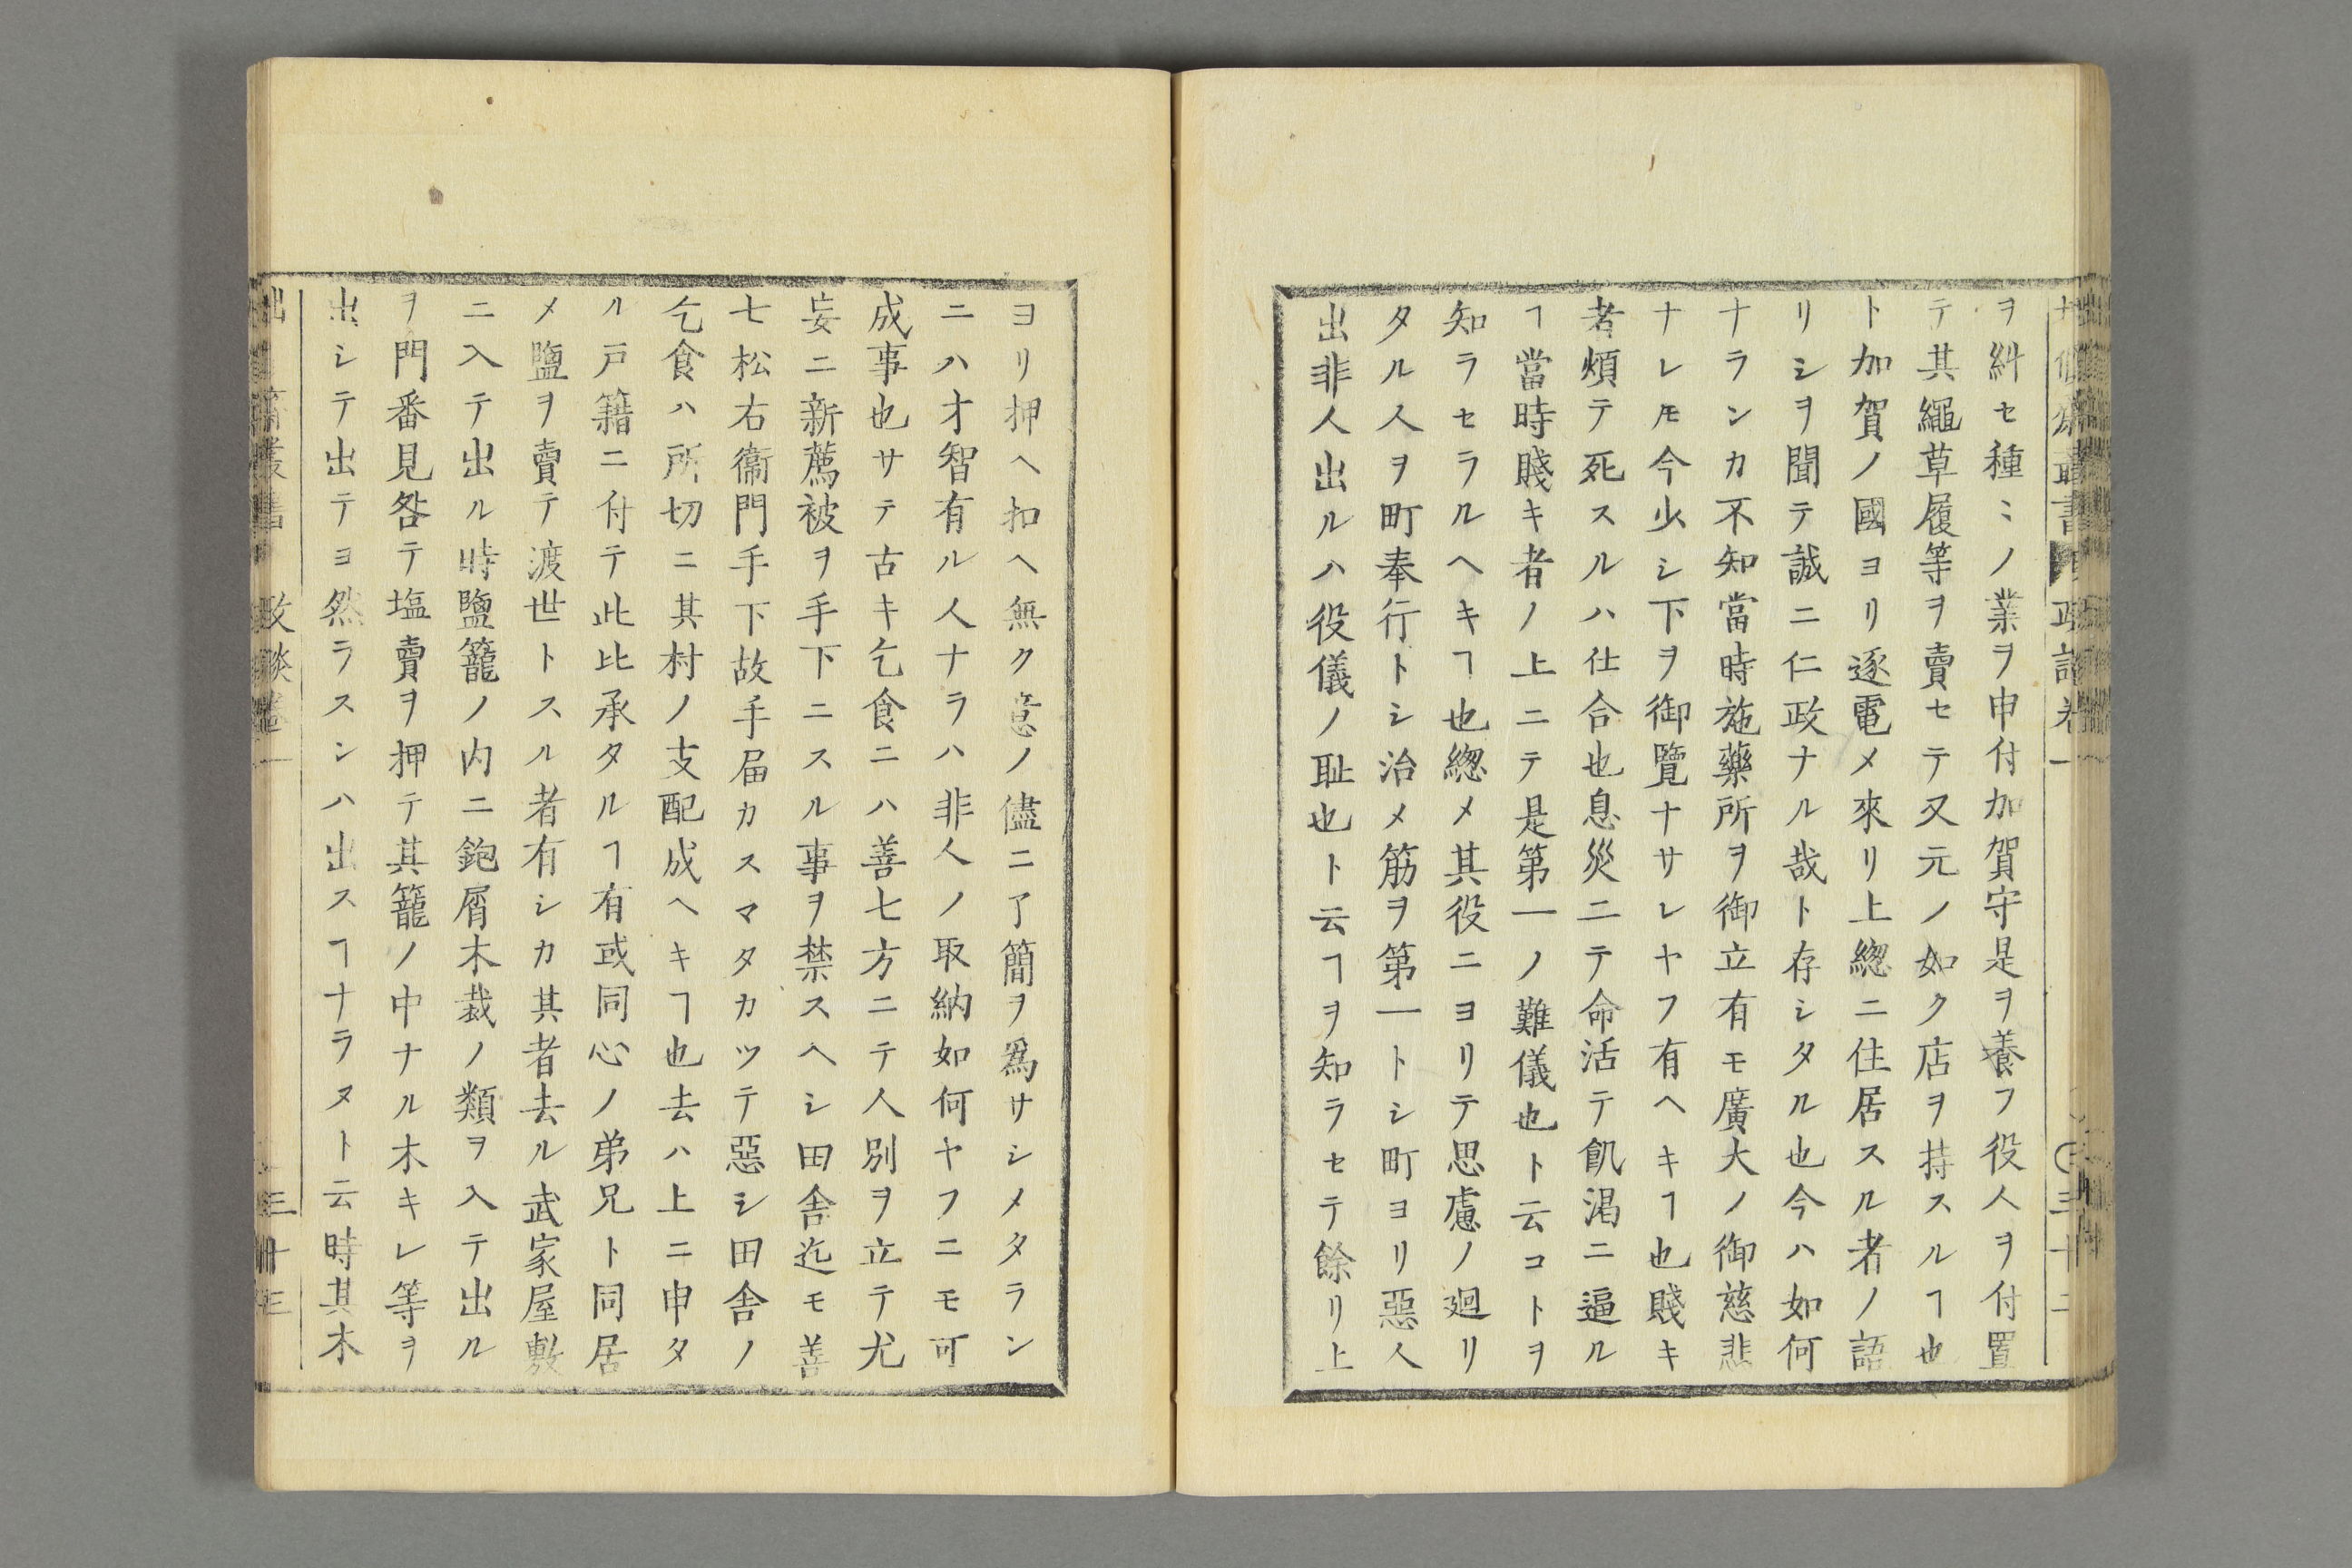 ヲ糾セ種〻ノ業ヲ申付加賀守是ヲ養フ役人ヲ付置
テ其繩草履等ヲ賣セテ又元ノ如ク店ヲ持スルヿ也
ト加賀ノ國ヨリ逐電メ來リ上總ニ住居スル者ノ語
リシヲ聞テ誠ニ仁政ナル哉ト存シタル也今ハ如何
ナランカ不知當時施藥所ヲ御立有モ廣大ノ御慈悲
ナレ𪜈今少シ下ヲ御覽ナサレヤフ有ヘキヿ也賤キ
者煩テ死スルハ仕合也息災ニテ命活テ飢渇ニ逼ル
ヿ當時賤キ者ノ上ニテ是第一ノ難儀也ト云コトヲ
知ラセラルヘキヿ也總メ其役ニヨリテ思慮ノ廻リ
タル人ヲ町奉行トシ治メ筋ヲ第一トシ町ヨリ惡人
出非人出ルハ役儀ノ耻也ト云ヿヲ知ラセテ餘リ上
ヨリ押ヘ扣ヘ無ク意ノ儘ニ了簡ヲ爲サシメタラン
ニハ才智有ル人ナラハ非人ノ取納如何ヤフニモ可
成事也サテ古キ乞食ニハ善七方ニテ人別ヲ立テ尤
妄ニ新薦被ヲ手下ニスル事ヲ禁スヘシ田舍迄モ善
七松右衞門手下故手届カスマタカツテ惡シ田舍ノ
乞食ハ所切ニ其村ノ支配成ヘキヿ也去ハ上ニ申タ
ル戸籍ニ付テ此比承タルヿ有或同心ノ弟兄ト同居
メ鹽ヲ賣テ渡世トスル者有シカ其者去ル武家屋敷
ニ入テ出ル時鹽籠ノ内ニ鉋屑木裁ノ類ヲ入テ出ル
ヲ門番見咎テ塩賣ヲ押テ其籠ノ中ナル木キレ等ヲ
出シテ出テヨ然ラスンハ出スヿナラヌト云時其木
叢書 政談卷一 三十三